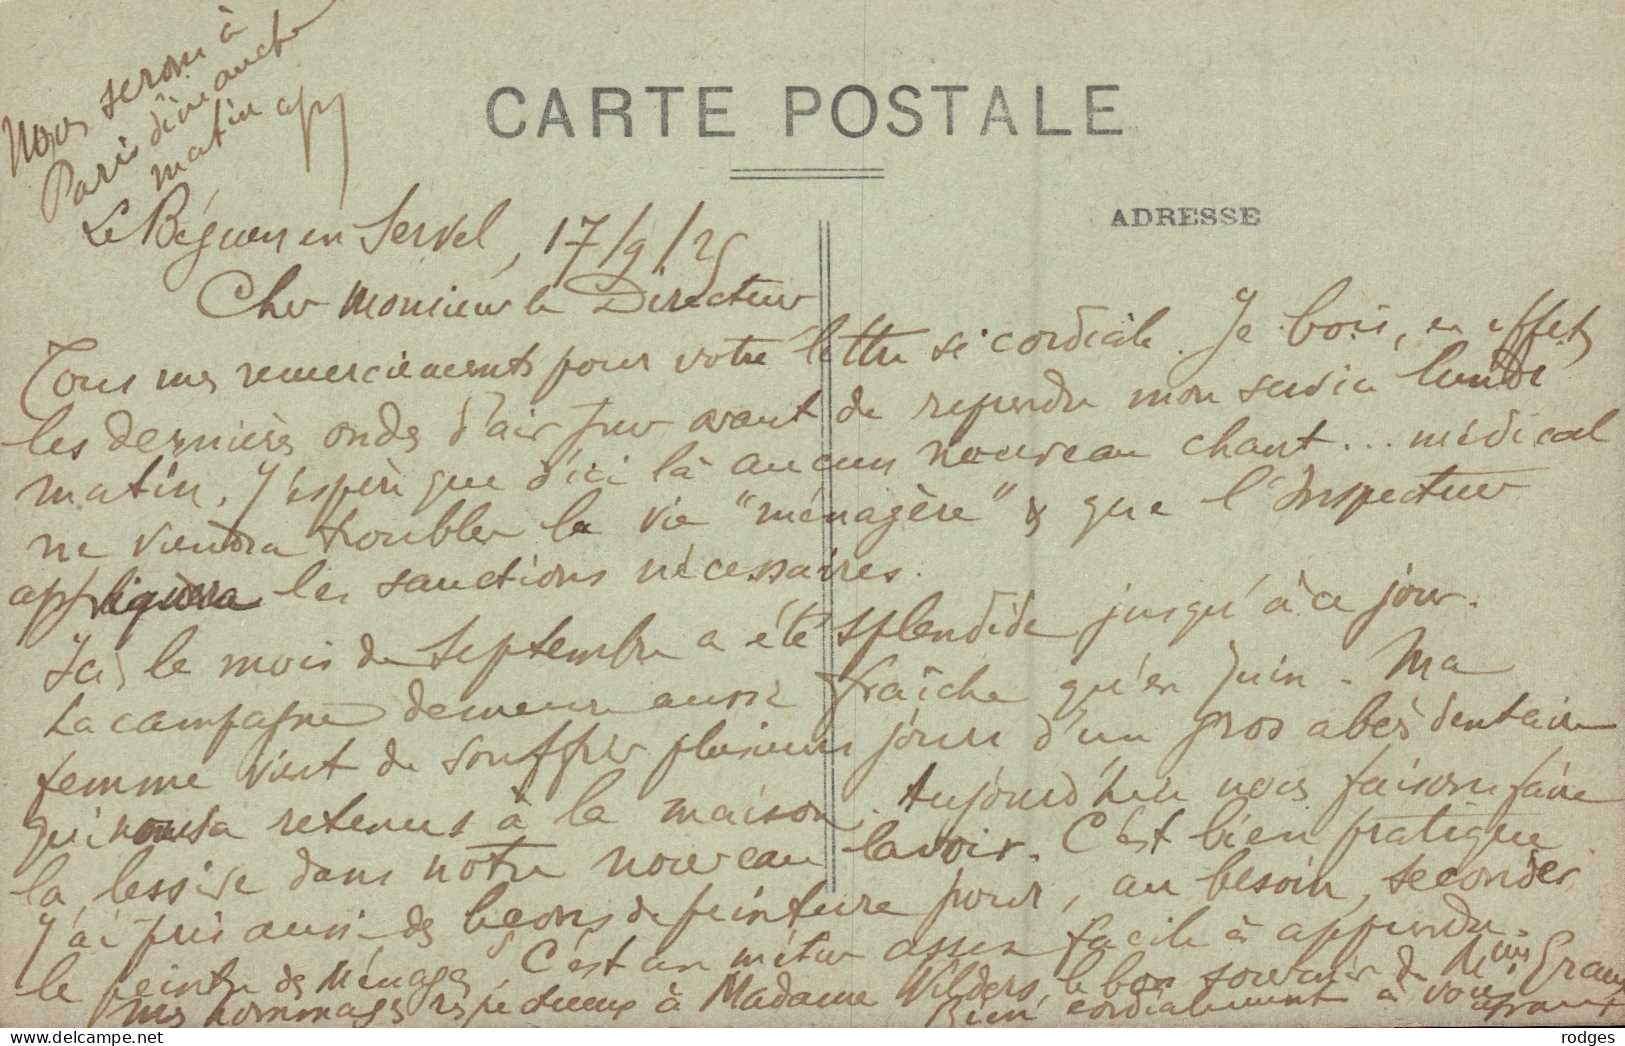 Nous serons à
Paris dimanche
matin
CARTE POSTALE
ADRESSE
Le Béguen en Servel, 17/9/25
Cher Monsieur le Directeur
Tous mes remerciements pour votre lettre si cordiale. Je bois, en effet,
les dernières ondes d'air pur avant de reprendre mon service lundi
matin. J'espère que d'ici là aucun nouveau chant... médical
ne viendra troubler la vie "ménagère" & que l'Inspecteur
appliquera les sanctions nécessaires.
Ici, le mois de Septembre a été splendide jusqu'à ce jour.
La campagne demeure aussi fraîche qu'en Juin. Ma
femme vient de souffrir plusieurs jours d'un gros abcès dentaire
qui nous a retenus à la maison. Aujourd'hui nous faisons faire
la lessive dans notre nouveau lavoir. C'est bien pratique
J'ai pris aussi des leçons de peinture pour, au besoin, seconder
le peintre de Ménages. C'est un métier assez facile à apprendre.
Mes hommages respectueux à Madame Wilders, le bon souvenir de
Bien cordialement à vous
rodges